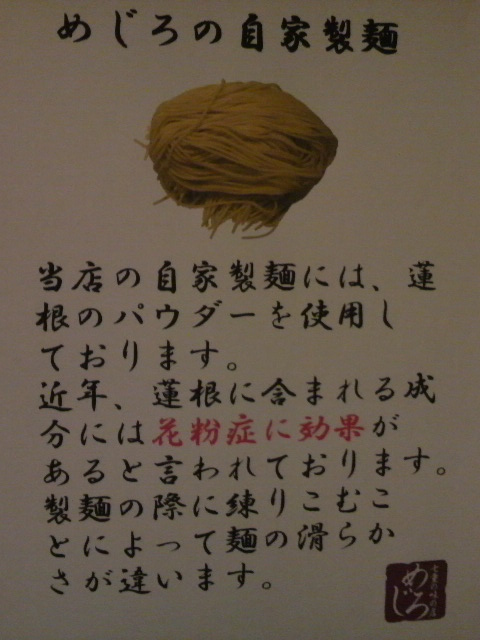 めじろの自家製麺
当店の自家製麺には、蓮
根のパウダーを使用し
ております。
近年、蓮根に含まれる成
分には花粉症に効果が
あると言われております。
製麺の際に練りこむこ
とによって麺の滑らか
さが違います。
めじろ